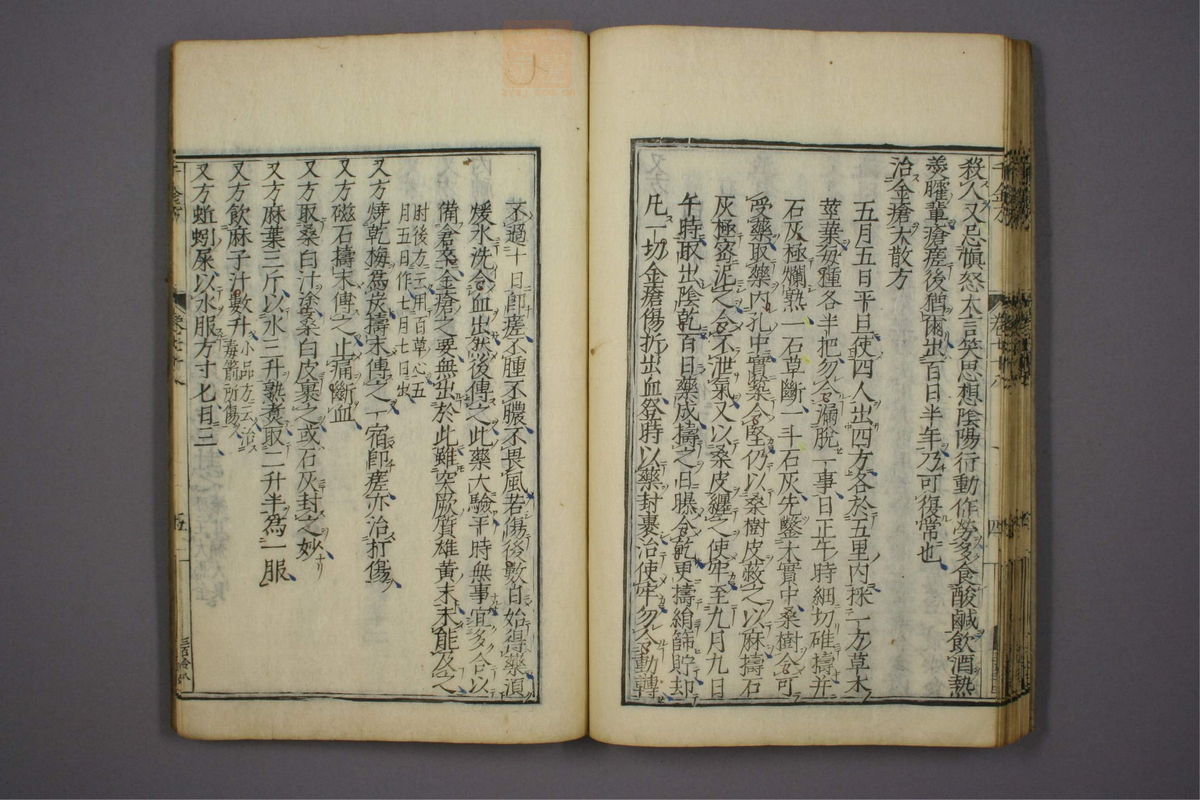 殺人又忌慎怒大言笑思想陰陽行動作勞多食酸鹹飲酒熱
羹臛輩瘡瘥後猶爾出百日半年乃可復常也
治金瘡大散方
五月五日平旦使四人出四方各於五里內採一方草木
莖葉每種各半把勿令漏脫一事日正午時細切碓擣并
石灰極爛熟一石草斷一斗石灰先鑿大實中桑樹令可
受藥取藥內孔中實築令堅仍以桑樹皮蔽之以麻擣石
灰極密泥之令不泄氣又以桑皮纏之使牢至九月九日
午時取出陰乾百日藥成擣之日曝令乾更擣絹篩貯却
凡一切金瘡傷折出血登時以藥封裹治使牢勿令動轉
不過十日即瘥不腫不膿不畏風若傷後數日始得藥須
煖水洗令血出然後傅之此藥大驗平時無事宜多合以
備倉卒金瘡之要無出於此雖突厥質雄黃末未能及之
肘後方云用百草心五
月五日作七月七日出
又方燒乾梅為炭擣末傅之一宿即瘥亦治打傷
又方磁石擣末傅之止痛斷血
又方取桑白汁塗桑白皮裹之或石灰封之妙
又方麻葉三斤以水三升熟煮取二升半為一服
又方飲麻子汁數升
小品方云治
毒箭所傷
又方蚯蚓屎以水服方寸匕日三
千金方
卷七十六
四
五